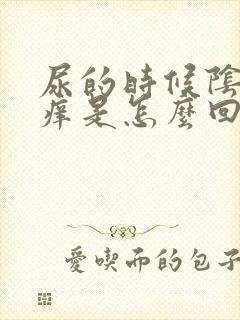 尿的時候陰
痒是怎麼回
愛喫而的包子